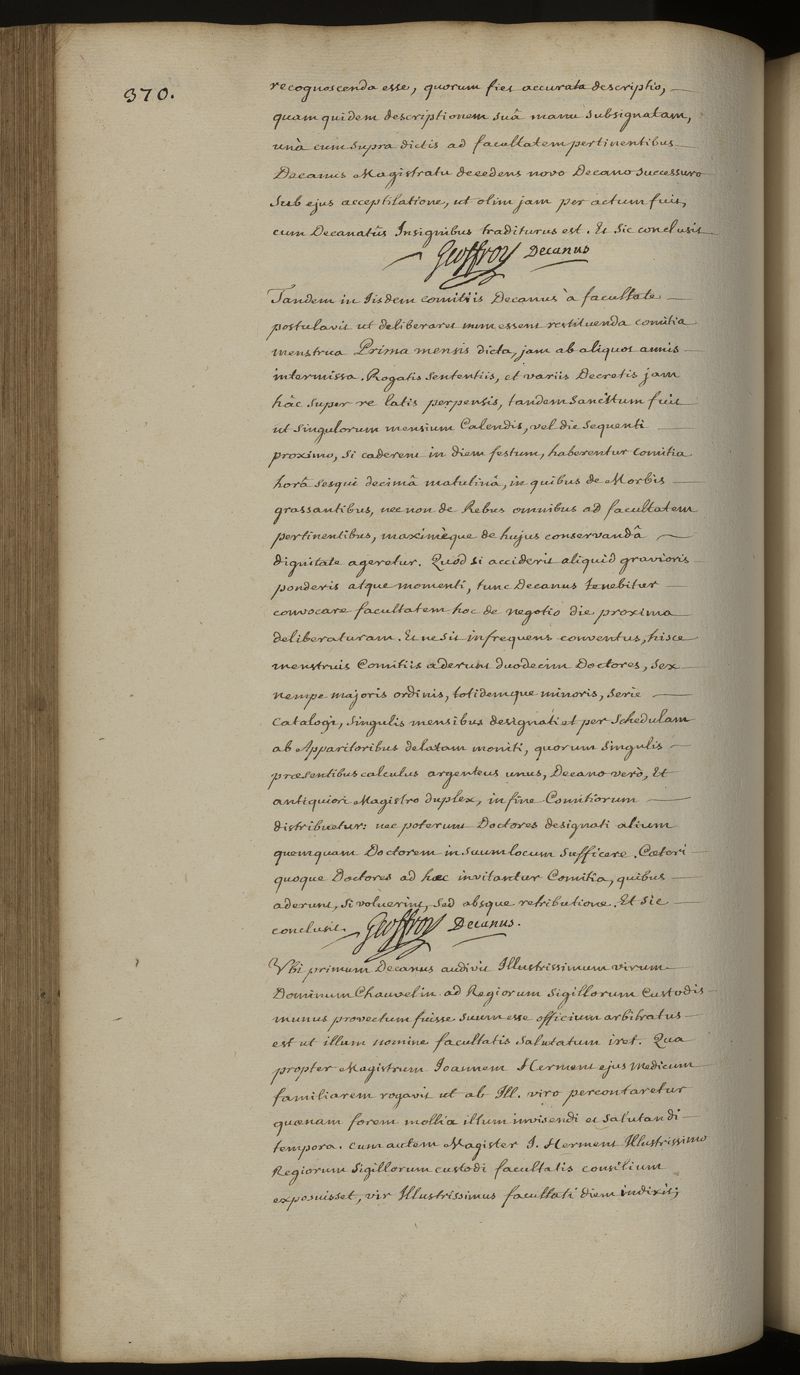 370.
recognoscenda esse, quorum fiet accurata descriptio,
quam quidem descriptionem suâ manu subsignatam,
unà cum supra dictis ad facultatem pertinentibus
Decanus Magistratu decedens novo Decano successuro
sub ejus acceptilatione, ut olim jam per actum fuit,
cum Decanatûs Insignibus traditurus est. Et sic conclusit
Geoffroy Decanus
Tandem in Iisdem comitiis Decanus à facultate
postulavit ut deliberaret num essent restituenda comitia
menstrua Prima mensis dicta, jam ab aliquot annis
intermissa. Rogatis sententiis, et variis Decretis jam
hâc super re latis perpensis, tandem sancitum fuit
ut singulorum mensium Calendis, vel die sequenti
proximo, si caderent in diem festum, haberentur comitia
horâ sesqui decimâ matutinâ, in quibus de Morbis
grassantibus, nec non de Rebus omnibus ad facultatem
pertinentibus, maximèque de hujus conservandâ
dignitate ageretur. Quòd si acciderit aliquid gravioris
ponderis atque momenti, tunc Decanus tenebitur
convocare facultatem hoc de negotio die proxima
deliberaturam. Et ne sit infrequens conventus, hisce
menstruis Comitiis aderunt duodecim Doctores, sex
nempe majoris ordinis, totidemque minoris, serie
Catalogi, singulis mensibus designati et per schedulam
ab Apparitoribus delatam moniti, quorum singulis
præsentibus calculus argenteus unus, Decano verò, Et
antiquiori Magistro duplex, in fine Comitiorum
distribuetur: nec poterunt Doctores designati alium
quemquam Doctorem in suum locum sufficere. Cæteri
quoque Doctores ad hæc invitantur Comitia, quibus
aderunt, si voluerint, sed absque retributione. Et sic
conclusit. Geoffroy Decanus.
Ubi primum Decanus audivit Illustrissimum virum
Dominum Chauvelin ad Regiorum Sigillorum Custodis
munus provectum fuisse suum esse officium arbitratus
est ut illum nomine facultatis salutatum iret. Qua
propter Magistrum Joannem Herment ejus medicum
familiarem rogavit ut ab Ill. viro percontaretur
quænam forent mollia illum invisendi et salutandi
tempora. cum autem Magister J. Herment Illustrissimo
Regiorum Sigillorum custodi facultatis consilium
exposuisset, vir Illustrissimus facultati diem indixit;